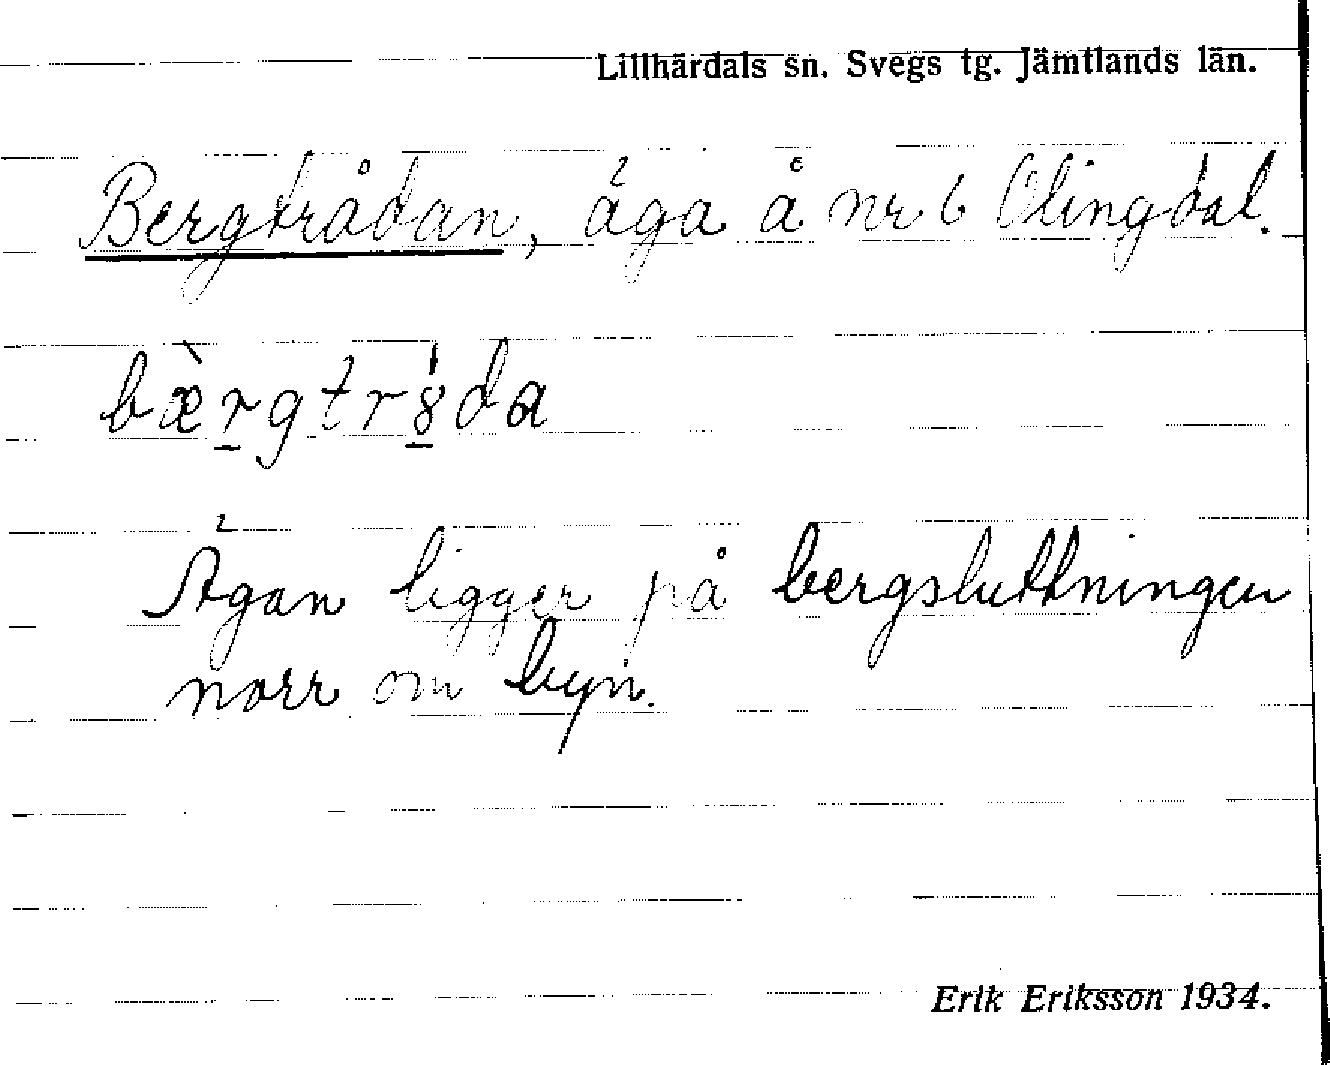 Lillhärdals sn. Svegs tg. Jämtlands län.
Bergtrådan, äga å nr 6 Olingdal.
bæ̀r̠gtrꝏ̠́da
Ägan ligger på bergsluttningen
norr om byn.
Erik Eriksson 1934.